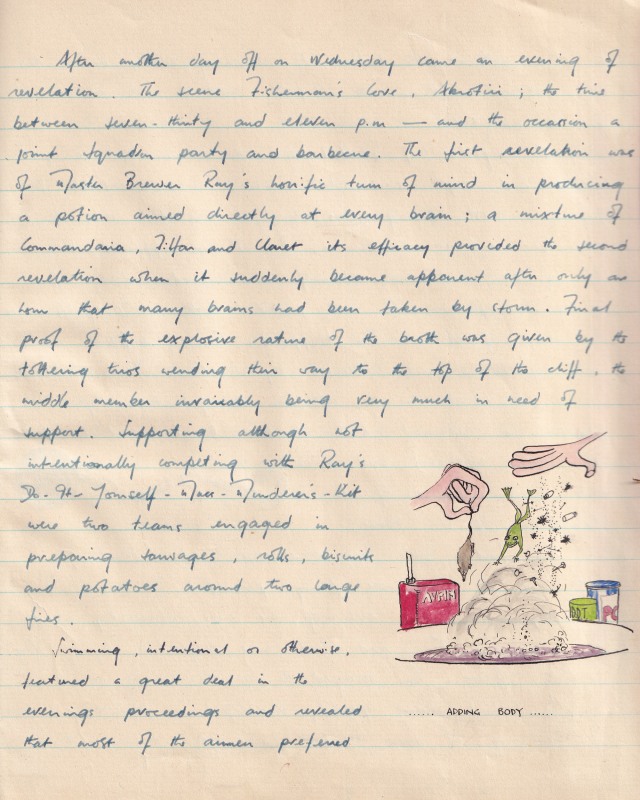 After another day off on Wednesday came an evening of
revelation. The scene Fisherman's Cove, Akrotiri; the time
between seven-thirty and eleven p.m — and the occasion a
joint squadron party and barbecue. The first revelation was
of Master Brewer Ray's horrific turn of mind in producing
a potion aimed directly at every brain; a mixture of
Commandaria, Filfar and Claret its efficacy provided the second
revelation when it suddenly became apparent after only an
hour that many brains had been taken by storm. Final
proof of the explosive nature of the broth was given by the
tottering trios wending their way to the top of the cliff, the
middle member invariably being very much in need of
support. Supporting although not
intentionally competing with Ray's
Do-It-Yourself-Mass-Murderer's-Kit
were two teams engaged in
preparing sausages, rolls, biscuits
and potatoes around two large
fires.
Swimming, intentional or otherwise,
featured a great deal in the
evenings proceedings and revealed
that most of the airmen preferred
DDT
...... ADDING BODY ......